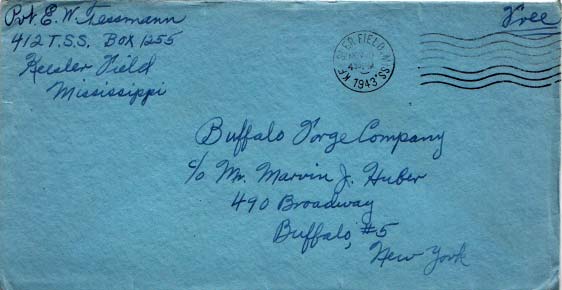 Pvt. E. W. Tessmann
412 T.S.S. Box 1255
Keesler Field
Mississippi
Free
KEESLER FIELD, MISS.
1943
Buffalo Forge Company
c/o Mr. Marvin J. Huber
490 Broadway
Buffalo, #5
New York